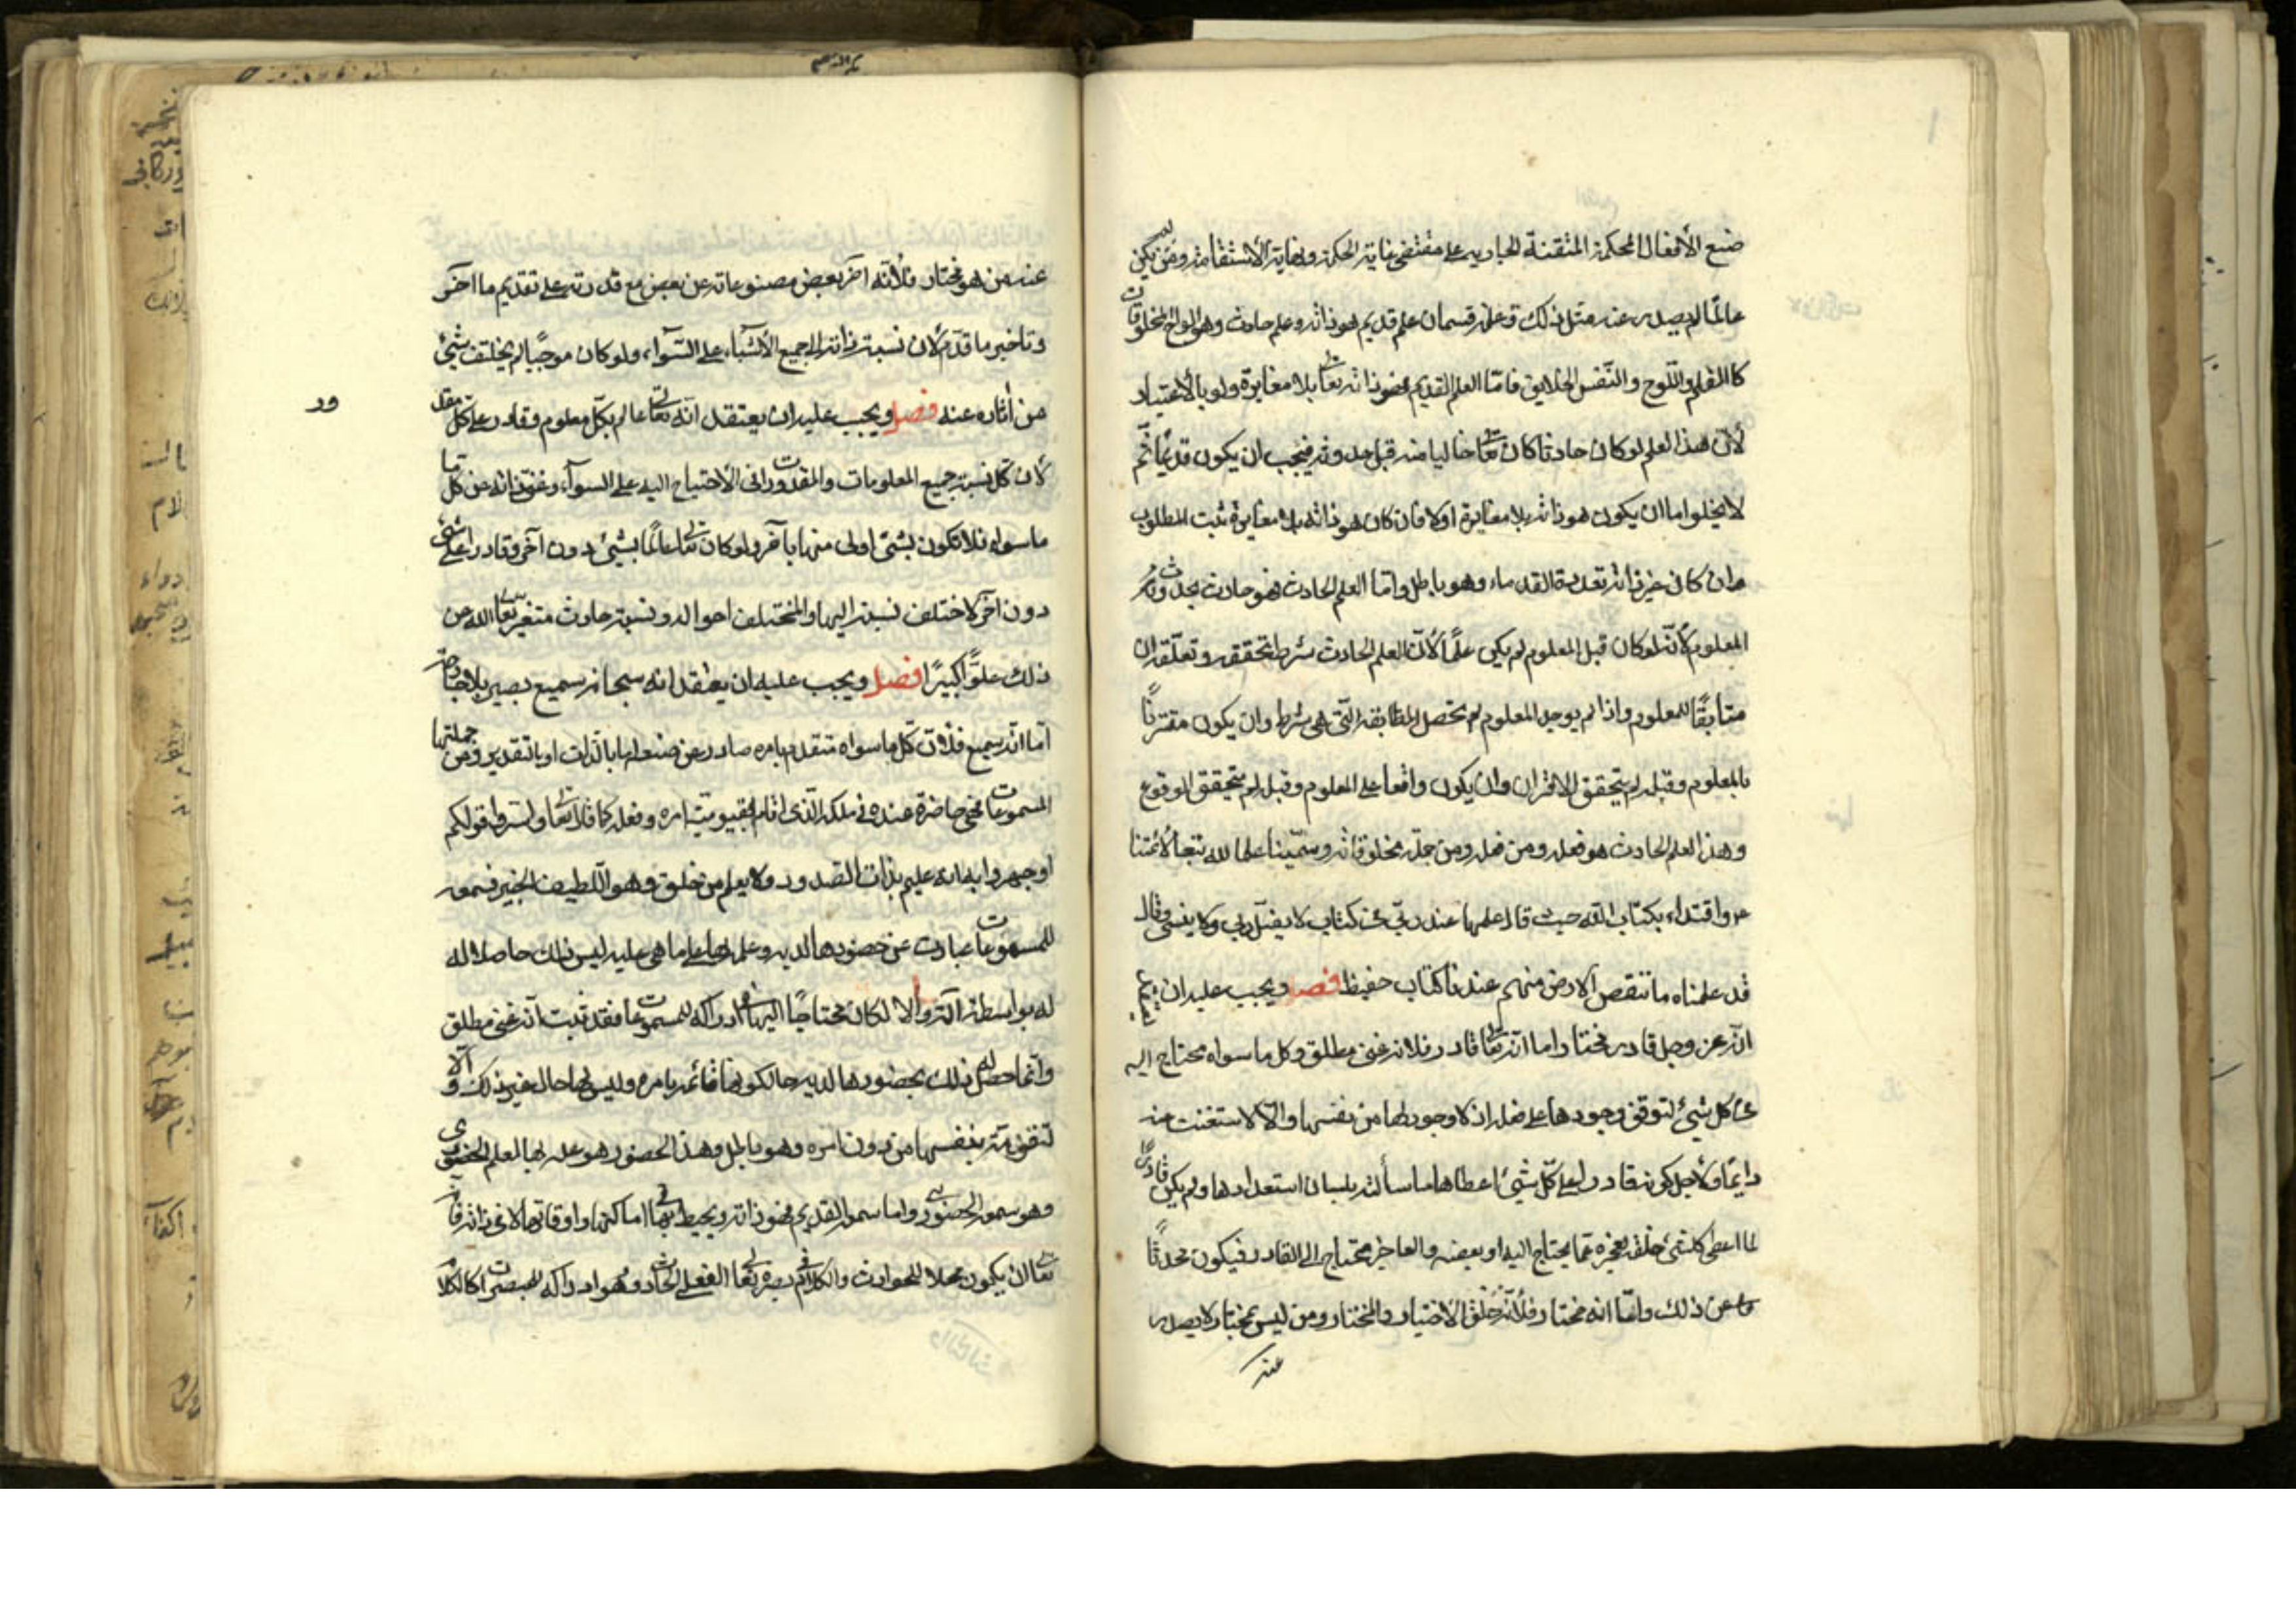 صنع الأفعال المحكمة المتقنة الجارية على مقتضى غاية الحكمة ونهاية الأستقامة ومن لم يكن
عالمًا لم يصدر عنه مثل ذلك وعلمه قسمان علم قديم هو ذاته وعلم حادث وهو الواح المخلوقات
كالقلم واللّوح والنّفس الخلايق فامّا العلم القديم فهو ذاته تعالى بلا مغايرة ولو بالأعتبار
لأنّ هذا العلم لو كان حادثا كان تعالى خاليا منه قبل حدوثه فيجب ان يكون قديمًا ثمّ
لا يخلو اما ان يكون هو ذاته بلا مغايرة اولا فان كان هو ذاته بلا مغايرة ثبت المطلوب
وان كان غير ذاته تعددة القدماء وهو باطل وامّا العلم الحادث فهو حادث بحدوث
المعلوم لأنّه لو كان قبل المعلوم لم يكن علمًا لأنّ العلم الحادث شرط تحققه وتعلّقه ان
متابقًا للمعلوم واذا لم يوجد المعلوم لم تحصل المطابقة الّتي هي شرط وان يكون مقترنًا
بالمعلوم وقبله لم يتحقق الاقتران وان يكون واقعا على المعلوم وقبله لم يتحقق الوقوع
وهذا العلم الحادث هو فعله ومن فعله ومن جملة مخلوقاته وسمّيناه علما لله تبعًا لأئمّتنا
ع واقتداء بكتاب الله حيث قال علمها عند ربّي في كتاب لا يضلّ ربي ولا ينسى وقال
قد علمناه ما تنقص الارض منهم عندنا كتاب حفيظ فصل ويجب عليه ان يعتقد
انّه عز وجل قادر مختار اما انّه تعالى قادر فلانه غني مطلق وكل ما سواه محتاج اليه
في كل شيئ لتوقف وجودها على فعله اذ لا وجود لها من نفسها والّا لاستغنت عنه
دايمًا ولأجل كونه قادرا على كلّ شيئ اعطاها ما سألته بلسان استعدادها ولم يكن قادرًا
لما اعطى كلشئ خلقه لعجزه عمّا يحتاج اليه او بعضه والعاجز محتاج الى القادر فيكون محدثًا
تعالى عن ذلك وامّا انه مختار فلأنّه خلق الاختيار والمختار ومن ليس بمختار لا يصدر
عنه
عنه من هو مختار ولأنّه اخر بعض مصنوعاته عن بعض مع قدرته على تقديم ما اخّر
وتاخير ما قدّم لأن نسبة ذاته الى جميع الأشياء على السّوآء ولو كان موجبًا لم يختلف شيئ
من أثاره عنه فصل ويجب عليه ان يعتقد انّه تعالى عالم بكلّ معلوم وقادر على كلّ مقدور
لأن كلّ نسبة جميع المعلومات والمقدورات في الأحتياج اليه على السوآء وغنى ذاته عن كلّ
ما سواه فلا تكون بشئ اولى منها بآخر ولو كان تعالى عالمًا بشيئ دون آخر وقادرا على شئ
دون آخر لاختلف نسبته اليها والمختلف احواله ونسبته حادث متغير تعالى الله عن
ذلك علوًّا كبيرًا فصل ويجب عليه ان يعتقد انه سبحانه سميع بصير بلا جارحة
امّا انّه سميع فلأن كلّ ما سواه متقدم بامره صادر عن صنعه اما بالذات او بالتقدير ومن جملتها
المسموعات فهي حاضرة عنده في ملكه الّذى اقامه بقيوميّته امره وفعله كما قال تعالى واسروا قولكم
او جهروا به انه عليم بذات الصدور الا يعلم من خلق وهو اللّطيف الخبير فسمعه
للمسموعات عبارت عن حضورها لديه وعلمه بها على ما هي عليه ليس ذلك حاصلا له
له بواسطة آلته والّا لكان محتاجًا اليها في ادراكه للمسموعات فقد ثبت انّه غنى مطلق
وانّما حصل له ذلك بحضورها لديه حال كونها قائمة بامره وليس لها حال غير ذلك والّا
لتقوّمة بنفسها من دون امره وهو باطل وهذا الحضور هو علمه بها العلم الحضورى
وهو سمعه الحضورى واما سمعه القديم فهو ذاته ويحيط تعالى بها في اماكنها واوقاتها لا في ذاته فانه
تعالى ان يكون محلا للحوادث والكلام في بصره تعالى الفعلي الحادث وهو ادراكه للمبصرات كالكلام
ور